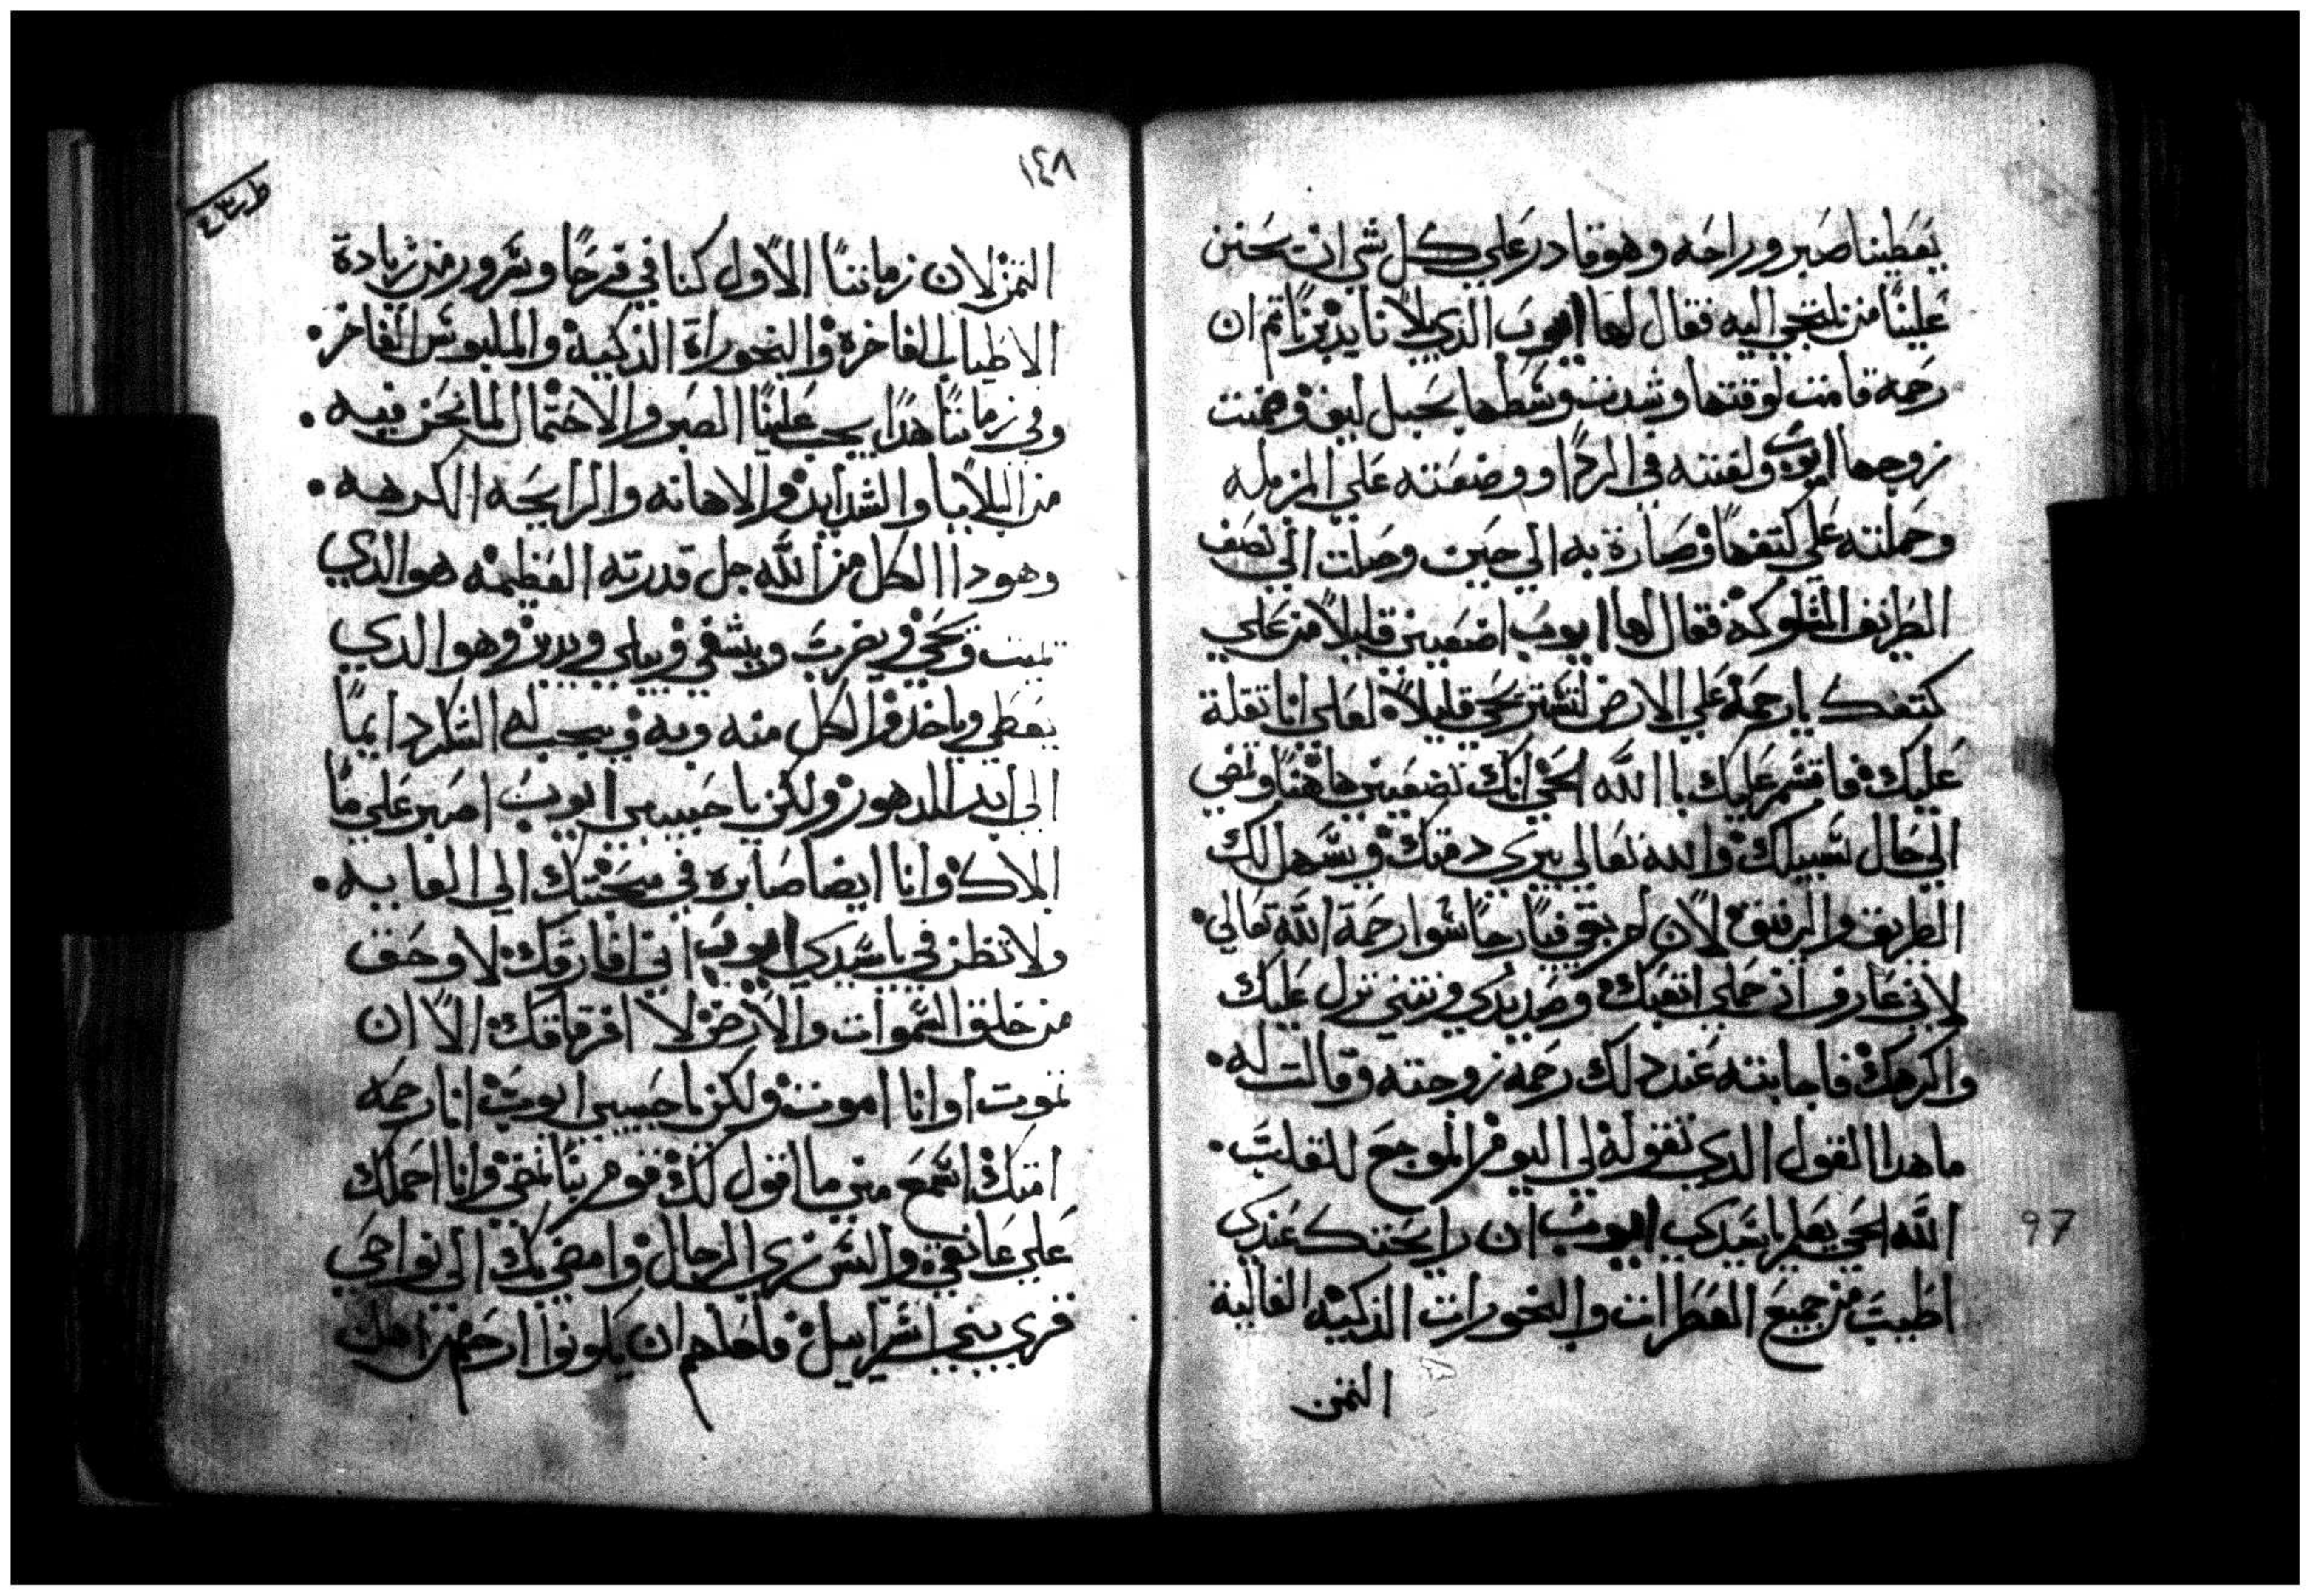 يعطينا صبر وراحه وهو قادر علي كل شي انت تحنن
علينا من نلتجي اليه فقال لها ايوب الذي بلانا يدبرنا ثم ان
رحمه قامت لوقتها وشدت وسطها بحبل ليف وهمت
زوجها ايوب ولفته في الردا ووضعته علي المزمله
وحملته علي كتفها وصارة به الي حين وصلت الي نصف
الطريف المشلوكه فقال لها ايوب اضعيني قليلاً من علي
كتفك يا رحمه علي الارض لتستريحي قليلاً لعلي انا تقلة
عليك فاقسم عليك با الله الحي انك تضعيني هاهنا وتمضي
الي حال سبيلك والله تعالي يبري دمتك ويسهل لك
الطريق والرفيق لان لم بقي فيا رجا سوا رحمة الله تعالي.
لاني عارف ان حملي اتعبك وصديدي ونتني نزل عليك
واكرهك فاجابته عند دلك رحمه زوجته وقالت له.
ما هدا القول الدي تقوله لي اليوم الموجع للقلب.
الله الحي يعلم يا سيدي ايوب ان رايحتك عندي
اطيب من جميع العطرات والبخورات الذكيه الغالية
الثمن
97
١٤٨
التمن لان زماننا الاول كنا في فرحا وسرور من زيادة
الاطياب الفاخرة والبخوراة الذكيه والملبوس الفاخر.
وفي زماننا هدا يجب علينا الصبر والاحتمال لما نحن فيه.
من البلايا والشدايد والاهانه والرايحه الكرهه.
وهودا الكل من الله جل قدرته العظيمه هو الدي
يميت ويحي ويضرب ويشفي ويبلي ويدين وهو الدي
يعطي وياخد والكل منه وبه ويجب له الشكر دايما
الي ابد الدهور ولكن يا حبيبي ايوب اصبر علي ما
ابلاك وانا ايضا صابره في محنتك الي الغايه.
ولا تظن في يا سيدي ايوب اني افارقك لا وحق
من خلق السموات والارض لا افرقاقك الا ان
تموت او انا اموت ولكن يا حبيبي ايوب انا رحمه
امتك اسمع مني ما اقول لك قوم بنا نمضي وانا احملك
علي عاتقي والبس زي الرجال وامضي بك الي نواحي
قري بني اسراييل فلعلهم ان يكونوا ارحم من اهل